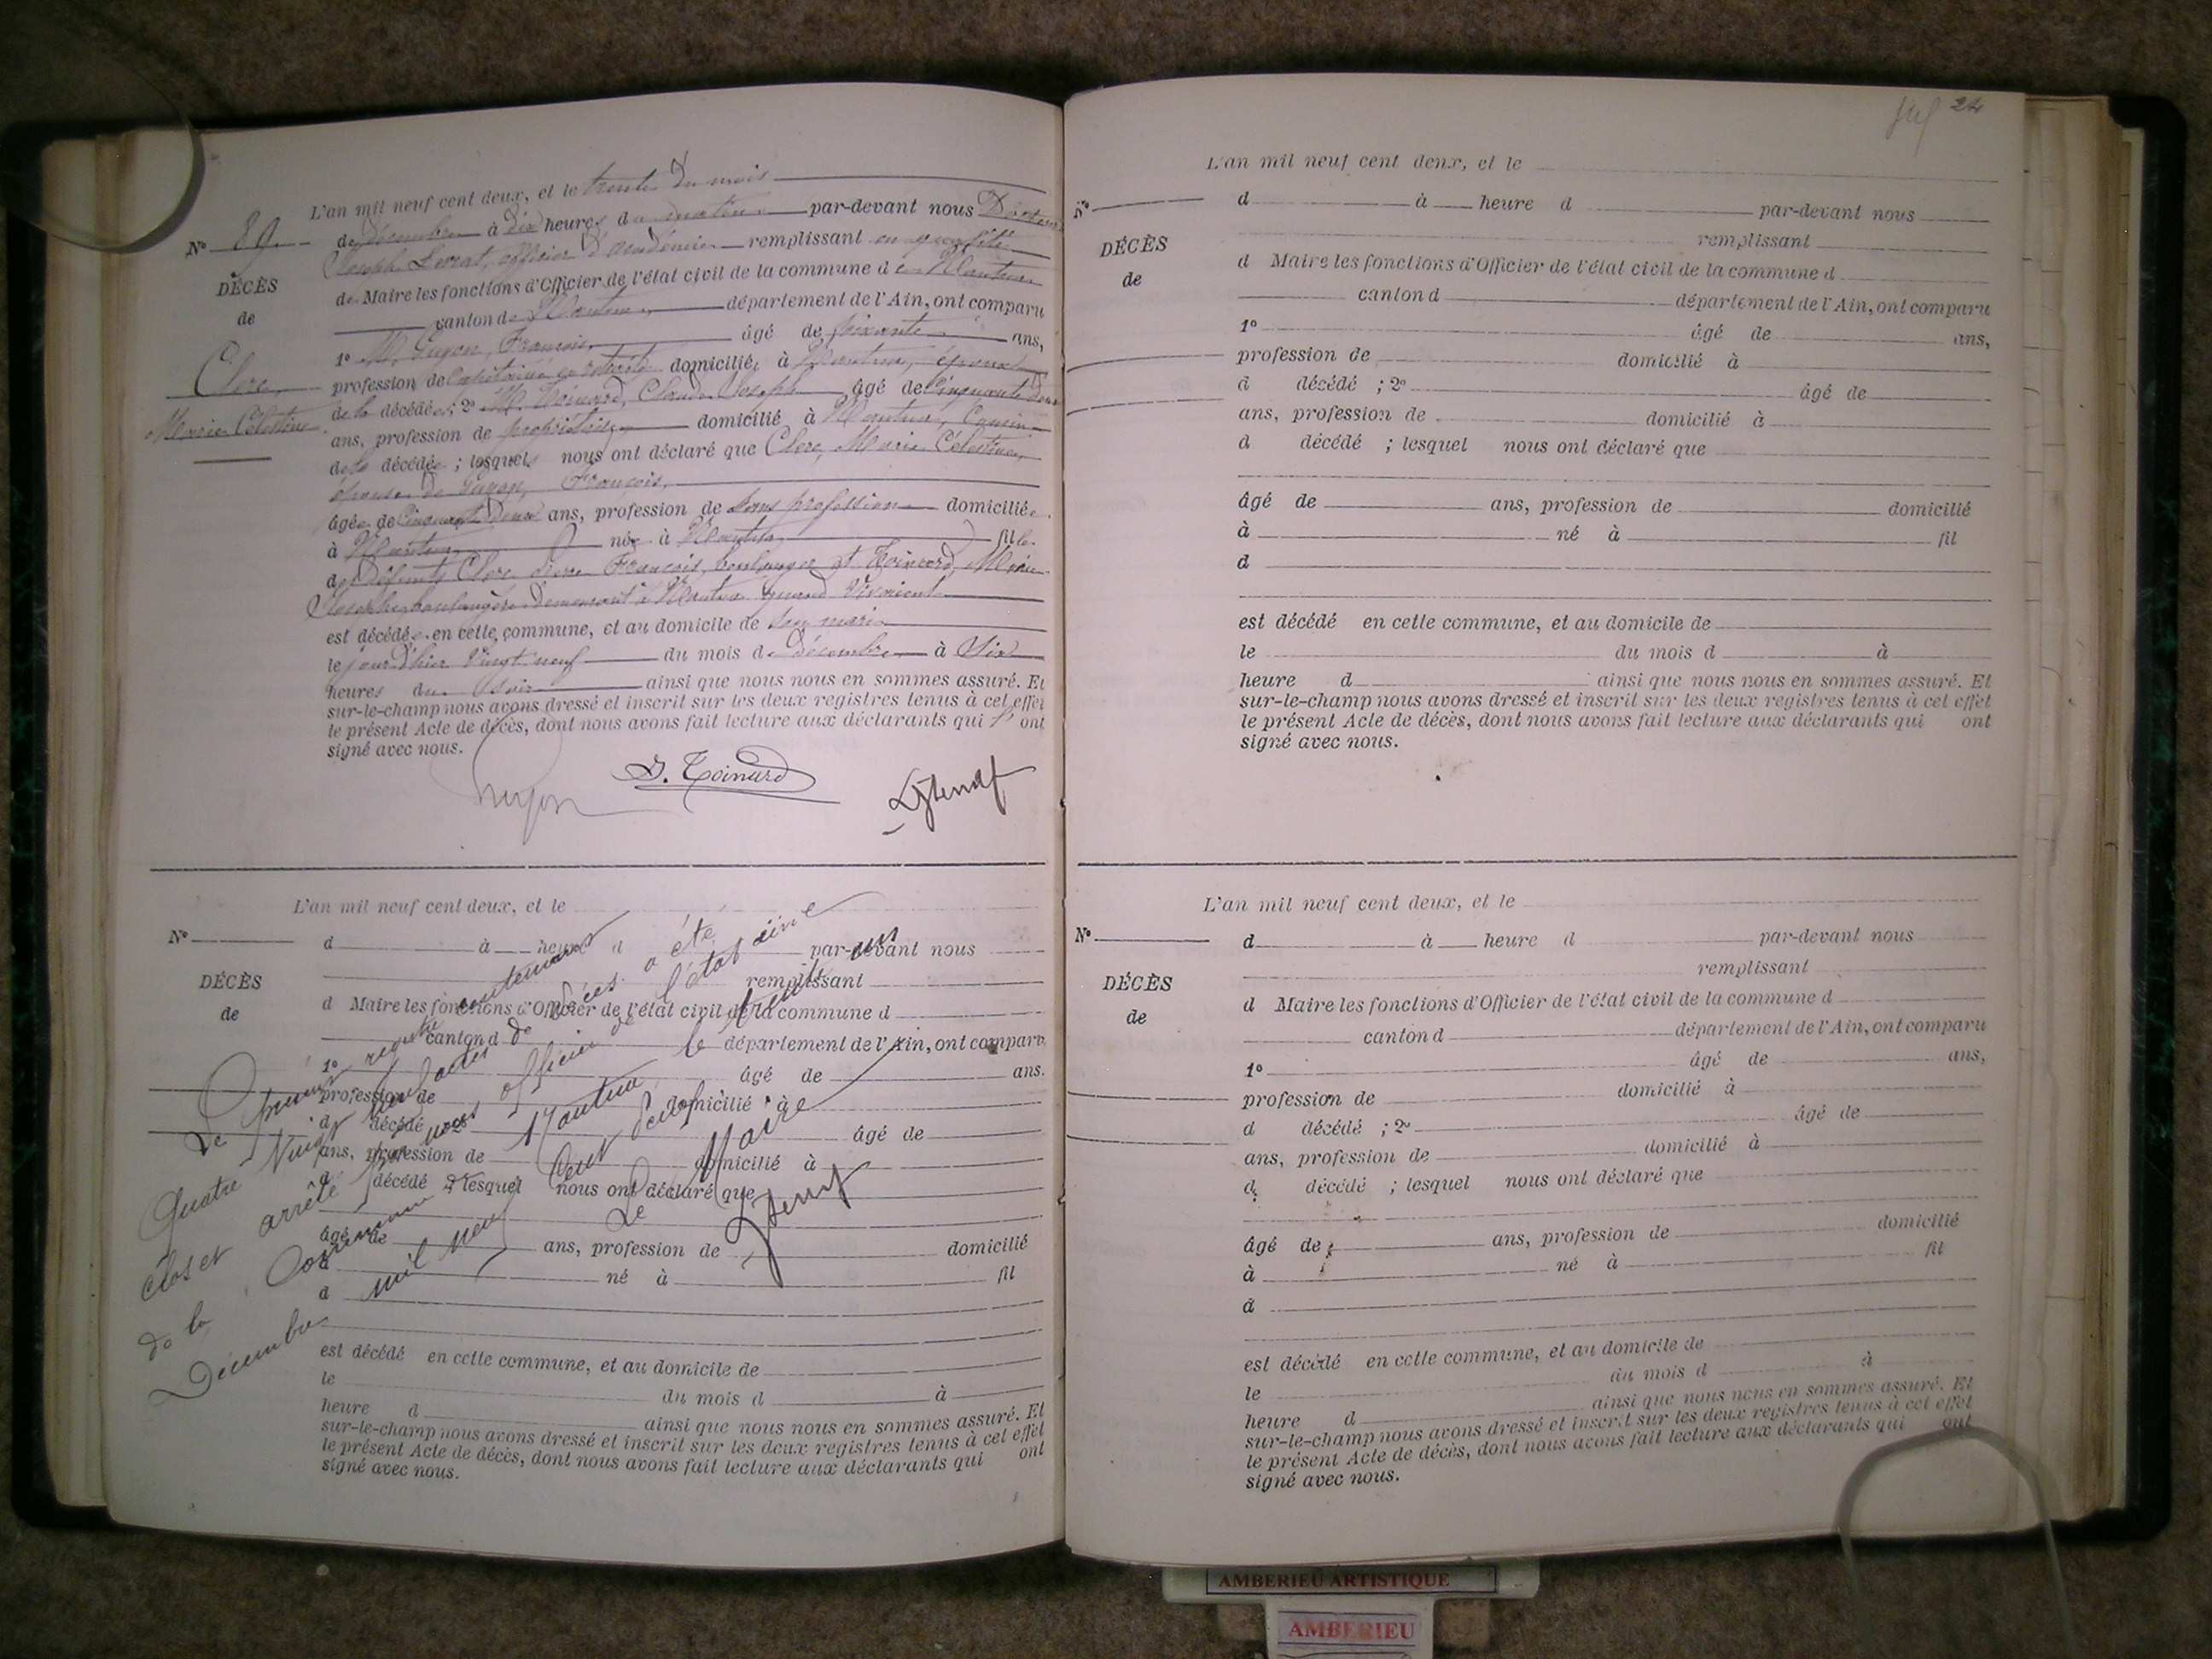 L'an mil neuf cent deux, et le trente du mois
de décembre à dix heures du matin par-devant nous Docteur
Joseph officier d'académie remplissant en qualité
de Maire les fonctions d'Officier de l'état civil de la commune de Nantua
canton de Nantua département de l'Ain, ont comparu
1° M. Guyon, François, âgé de soixante ans,
profession de Capitaine en retraite domicilié à Nantua, époux
de la décédée ; 2° M. Toinard, Claude Joseph âgé de cinquante deux
ans, profession de propriétaire domicilié à Nantua, Cousin
de la décédée ; lesquels nous ont déclaré que Clerc, Marie Célestine,
épouse de Guyon, François,
âgée de cinquante deux ans, profession de sans profession domiciliée
à Nantua née à Nantua fille
des défunts Clerc Pierre François, boulanger et Toinard, Marie
Josephe boulangère demeurant à Nantua quand vivaient
est décédée en cette commune, et au domicile de son mari
le jour d'hier vingt neuf du mois de décembre à six
heures du soir ainsi que nous nous en sommes assuré. Et
sur-le-champ nous avons dressé et inscrit sur les deux registres tenus à cet effet
le présent Acte de décès, dont nous avons fait lecture aux déclarants qui l' ont
signé avec nous.
N° 89
DÉCÈS
de
Clerc
Marie Célestine
Guyon
J. Toinard
L'an mil neuf cent deux, et le
N° d à heure d par-devant nous
remplissant
DÉCÈS
de
d Maire les fonctions d'Officier de l'état civil de la commune d
canton d département de l'Ain, ont comparu
1° âgé de ans.
profession de domicilié à
d décédé âgé de
ans, profession de domicilié à
d décédé lesquel nous ont déclaré que
âgé de ans, profession de domicilié
à né à fil
d
est décédé en cette commune, et au domicile de
le du mois d à
heure d ainsi que nous nous en sommes assuré. Et
sur-le-champ nous avons dressé et inscrit sur les deux registres tenus à cet effet
le présent Acte de décès, dont nous avons fait lecture aux déclarants qui ont
signé avec nous.
Le présent registre contenant
Quatre Vingt neuf actes de décès a été
clos et arrêté par nous officier de l'état civil
de la Commune Nantua le trente un
Décembre mil neuf cent deux
Le Maire
24
L'an mil neuf cent deux, et le
N° d à heure d par-devant nous
remplissant
DÉCÈS
de
d Maire les fonctions d'Officier de l'état civil de la commune d
canton d département de l'Ain, ont comparu
1° âgé de ans,
profession de domicilié à
d décédé ; 2° âgé de
ans, profession de domicilié à
d décédé ; lesquel nous ont déclaré que
âgé de ans, profession de domicilié
à né à fil
d
est décédé en cette commune, et au domicile de
le du mois d à
heure d ainsi que nous nous en sommes assuré. Et
sur-le-champ nous avons dressé et inscrit sur les deux registres tenus à cet effet
le présent Acte de décès, dont nous avons fait lecture aux déclarants qui ont
signé avec nous.
L'an mil neuf cent deux, et le
N° d à heure d par-devant nous
remplissant
DÉCÈS
de
d Maire les fonctions d'Officier de l'état civil de la commune d
canton d département de l'Ain, ont comparu
1° âgé de ans,
profession de domicilié à
d décédé ; 2° âgé de
ans, profession de domicilié à
d décédé ; lesquel nous ont déclaré que
âgé de ans, profession de domicilié
à né à fil
d
est décédé en cette commune, et au domicile de
le du mois d à
heure d ainsi que nous nous en sommes assuré. Et
sur-le-champ nous avons dressé et inscrit sur les deux registres tenus à cet effet
le présent Acte de décès, dont nous avons fait lecture aux déclarants qui ont
signé avec nous.
AMBERIEU ARTISTIQUE
AMBERIEU